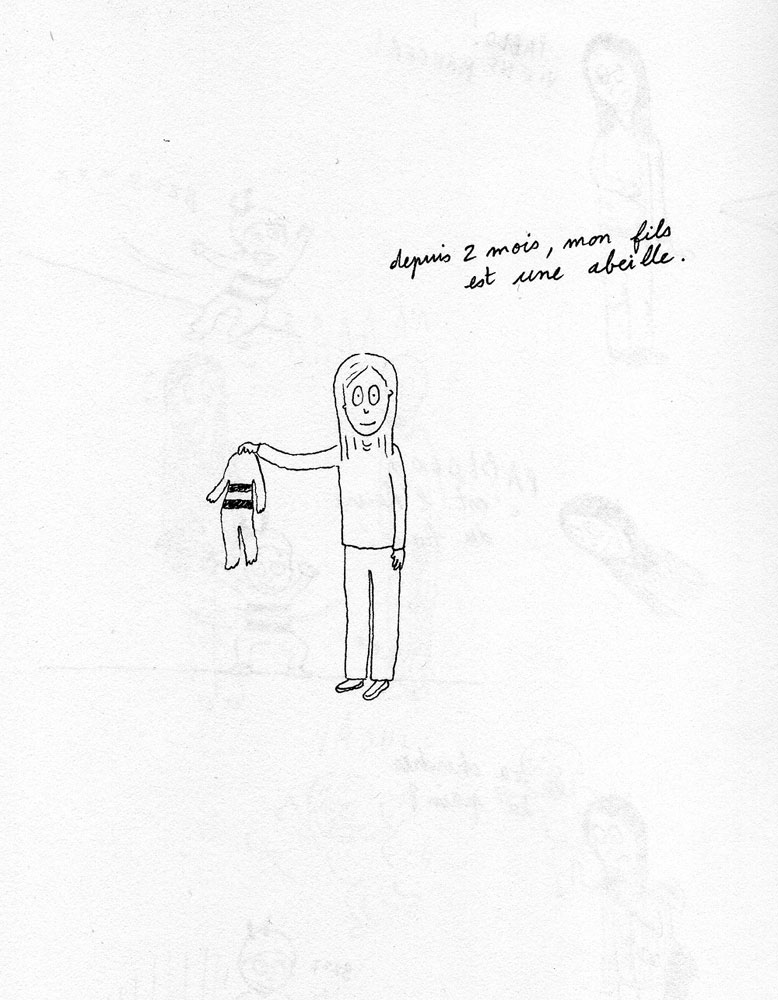 depuis 2 mois, mon fils
est une abeille.